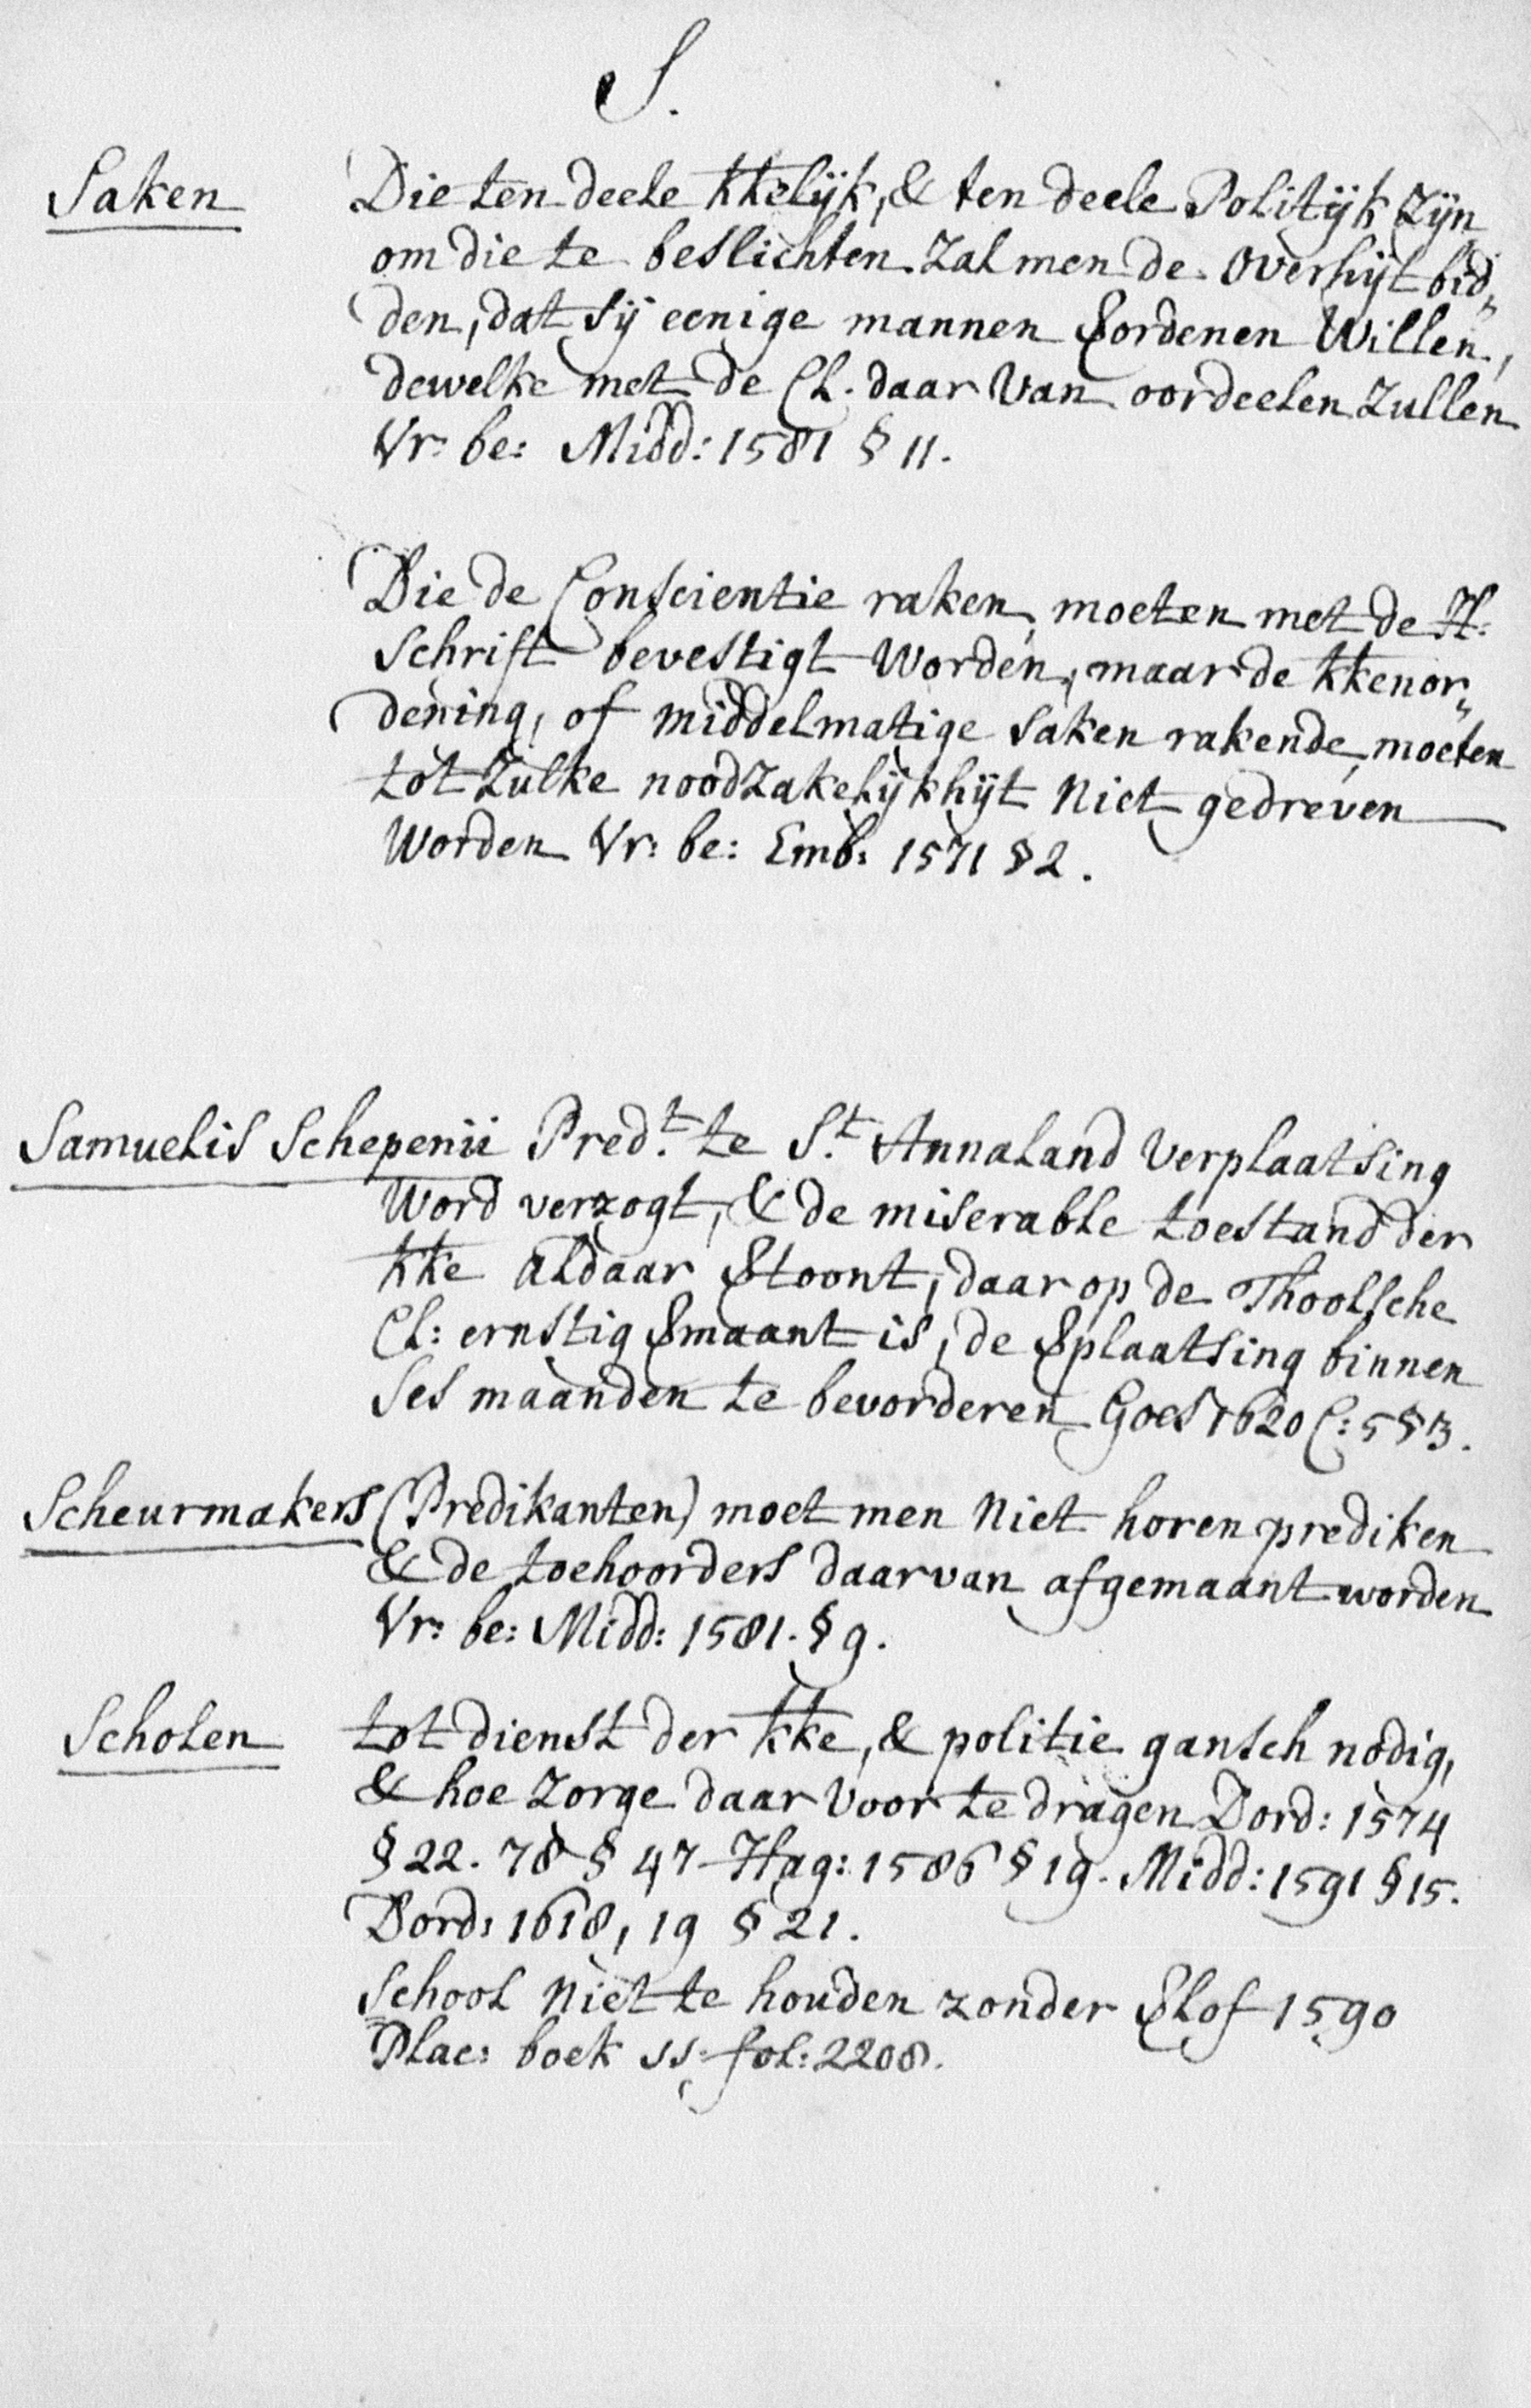 S.
Saken Die ten deele kkelijk, & ten deele Politijk zijn
om die te beslichten zal men de overhijt bid„
den, dat sij eenige mannen &ordenen willen,
dewelke met de Cl. daar van oordeelen zullen
Vr: be: Midd: 1581 § 11.
Die de Conscientie raken, moeten met de H:
Schrift bevestigt worden, maar de kkenor„
dening, of middelmatige saken rakende, moeten
tot zulke noodzakelijkhijt niet gedreven
worden Vr: be: Emb: 1571 § 2.
Samuelis Schepenii Pred.t te S.t Annaland verplaatsing
word verzogt, & de miserable toestand der
kke aldaar &toont, daar op de Thoolsche
Cl: ernstig &maant is, de &plaatsing binnen
ses maanden te bevorderen Goes 1620 C: 5 § 3.
Scheurmakers (Predikanten) moet men niet horen prediken
& de toehoorders daar van afgemaant worden
Vr: be: Midd: 1581. § 9.
Scholen tot dienst der kke, & politie gansch nodig,
& hoe zorge daar voor te dragen Dord: 1574
§ 22. 78 § 47 Hag: 1586 § 19. Midd: 1591 § 15.
Dord: 1618, 19 § 21.
School niet te houden zonder &lof 1590
Plac: boek ss: fol: 2208.